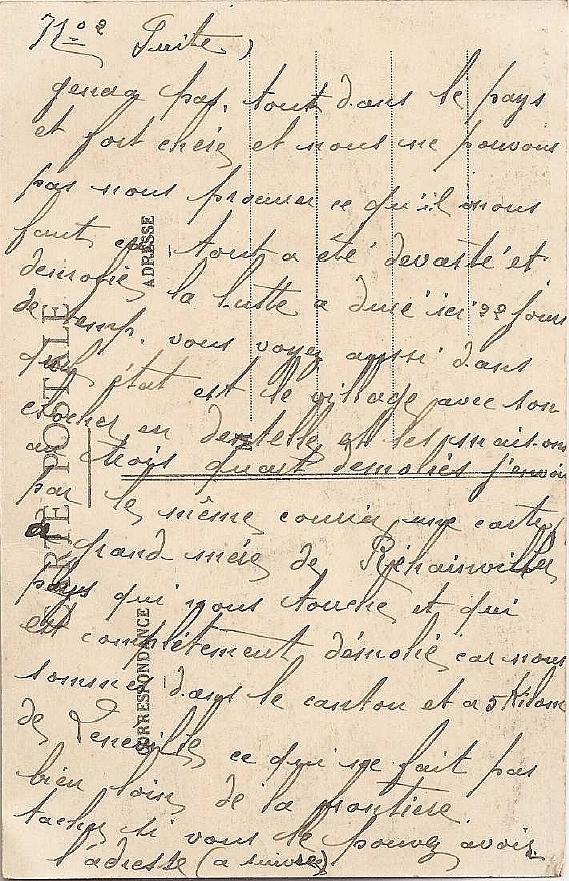 N° 2 Suite,
pas, tout dans le pays
et fort chère, et nous ne pouvons
pas nous procurer ce qu'il nous
faut, car tout a été devasté et
demolie, la lutte a duré ici 22 jours
de temp. vous voyez aussi dans
quel état est le village avec son
clocher en dentelle, et les maisons
au trois quart demolies j'envoie
par le même courrier, une carte
a grand mère de Réhainviller
pays qui nous touche et qui
est complètement démolie, car nous
sommes dans le canton et a 5 Kilom
de Luneville, ce qui ne fait pas
bien loin de la frontiere.
tachez si vous le pouvez avoir
l'adresse (a suivre)
CARTE POSTALE
ADRESSE
CORRESPONDANCE